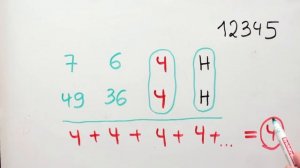 12345
7 6 4 H
49 36 4 H
4 + 4 + 4 + 4 + ... = 4